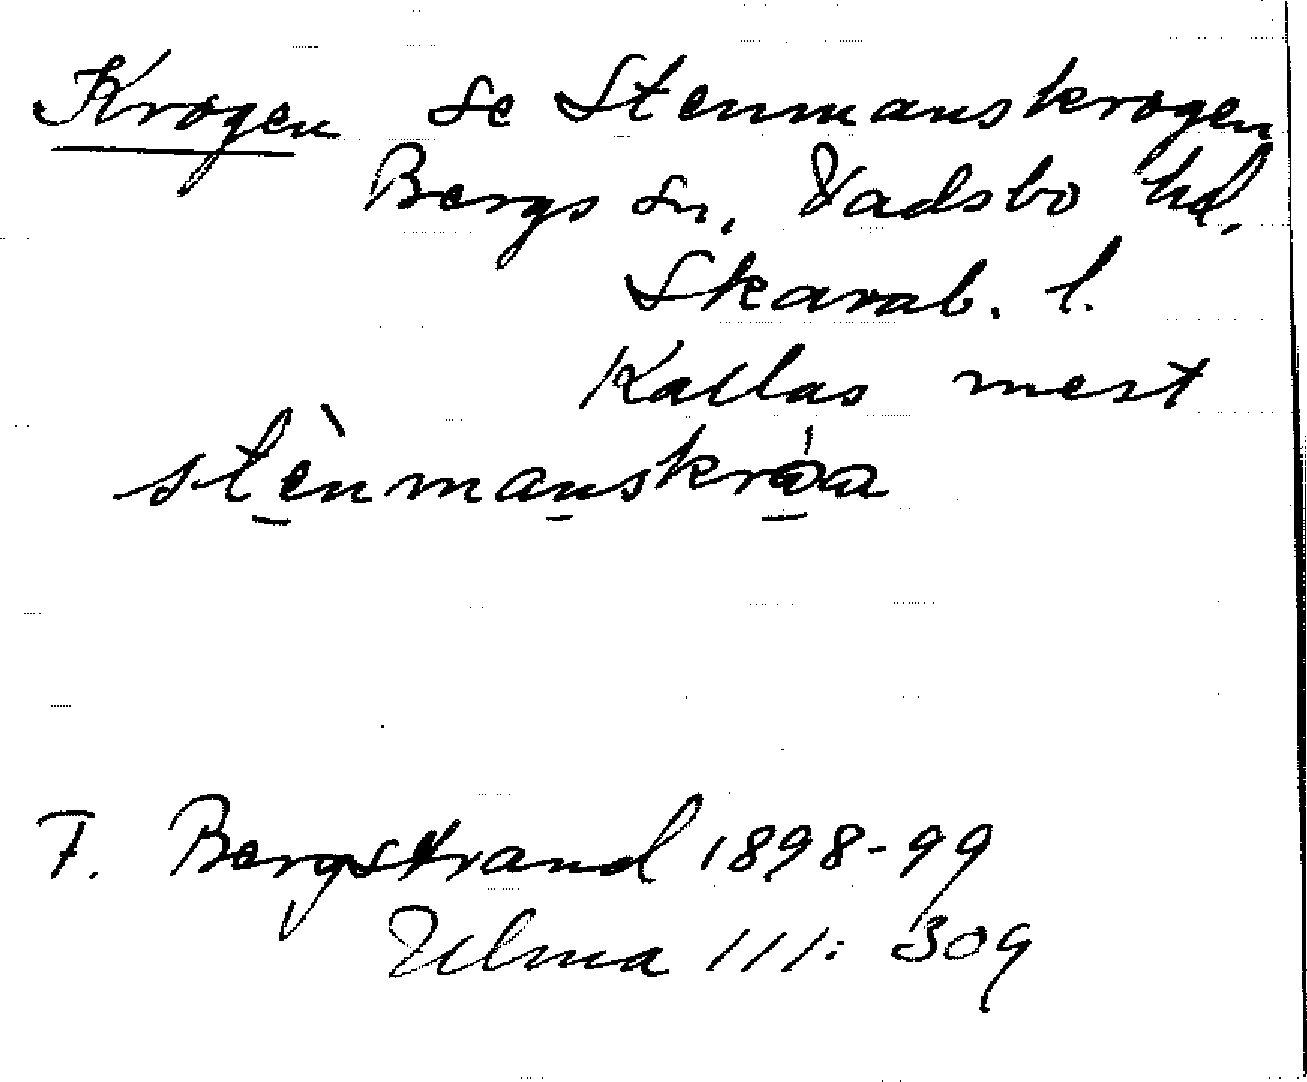 Krogen se Stenmanskrogen
Bergs sn, Vadsbo hd.
Skarab. l.
Kallas mest
stènmanskróa
F. Bergstrand 1898-99
Ulma 111: 309